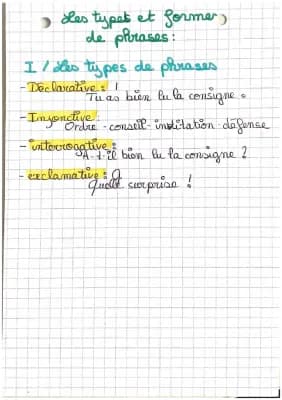 Les types et formes
de phrases:
I / Les types de phrases
- Déclarative :
Tu as bien lu la consigne.
- Injonctive:
Ordre - conseil - invitation - défense
- interrogative :
A-t-il bien lu la consigne ?
- exclamative :
Quelle surprise !